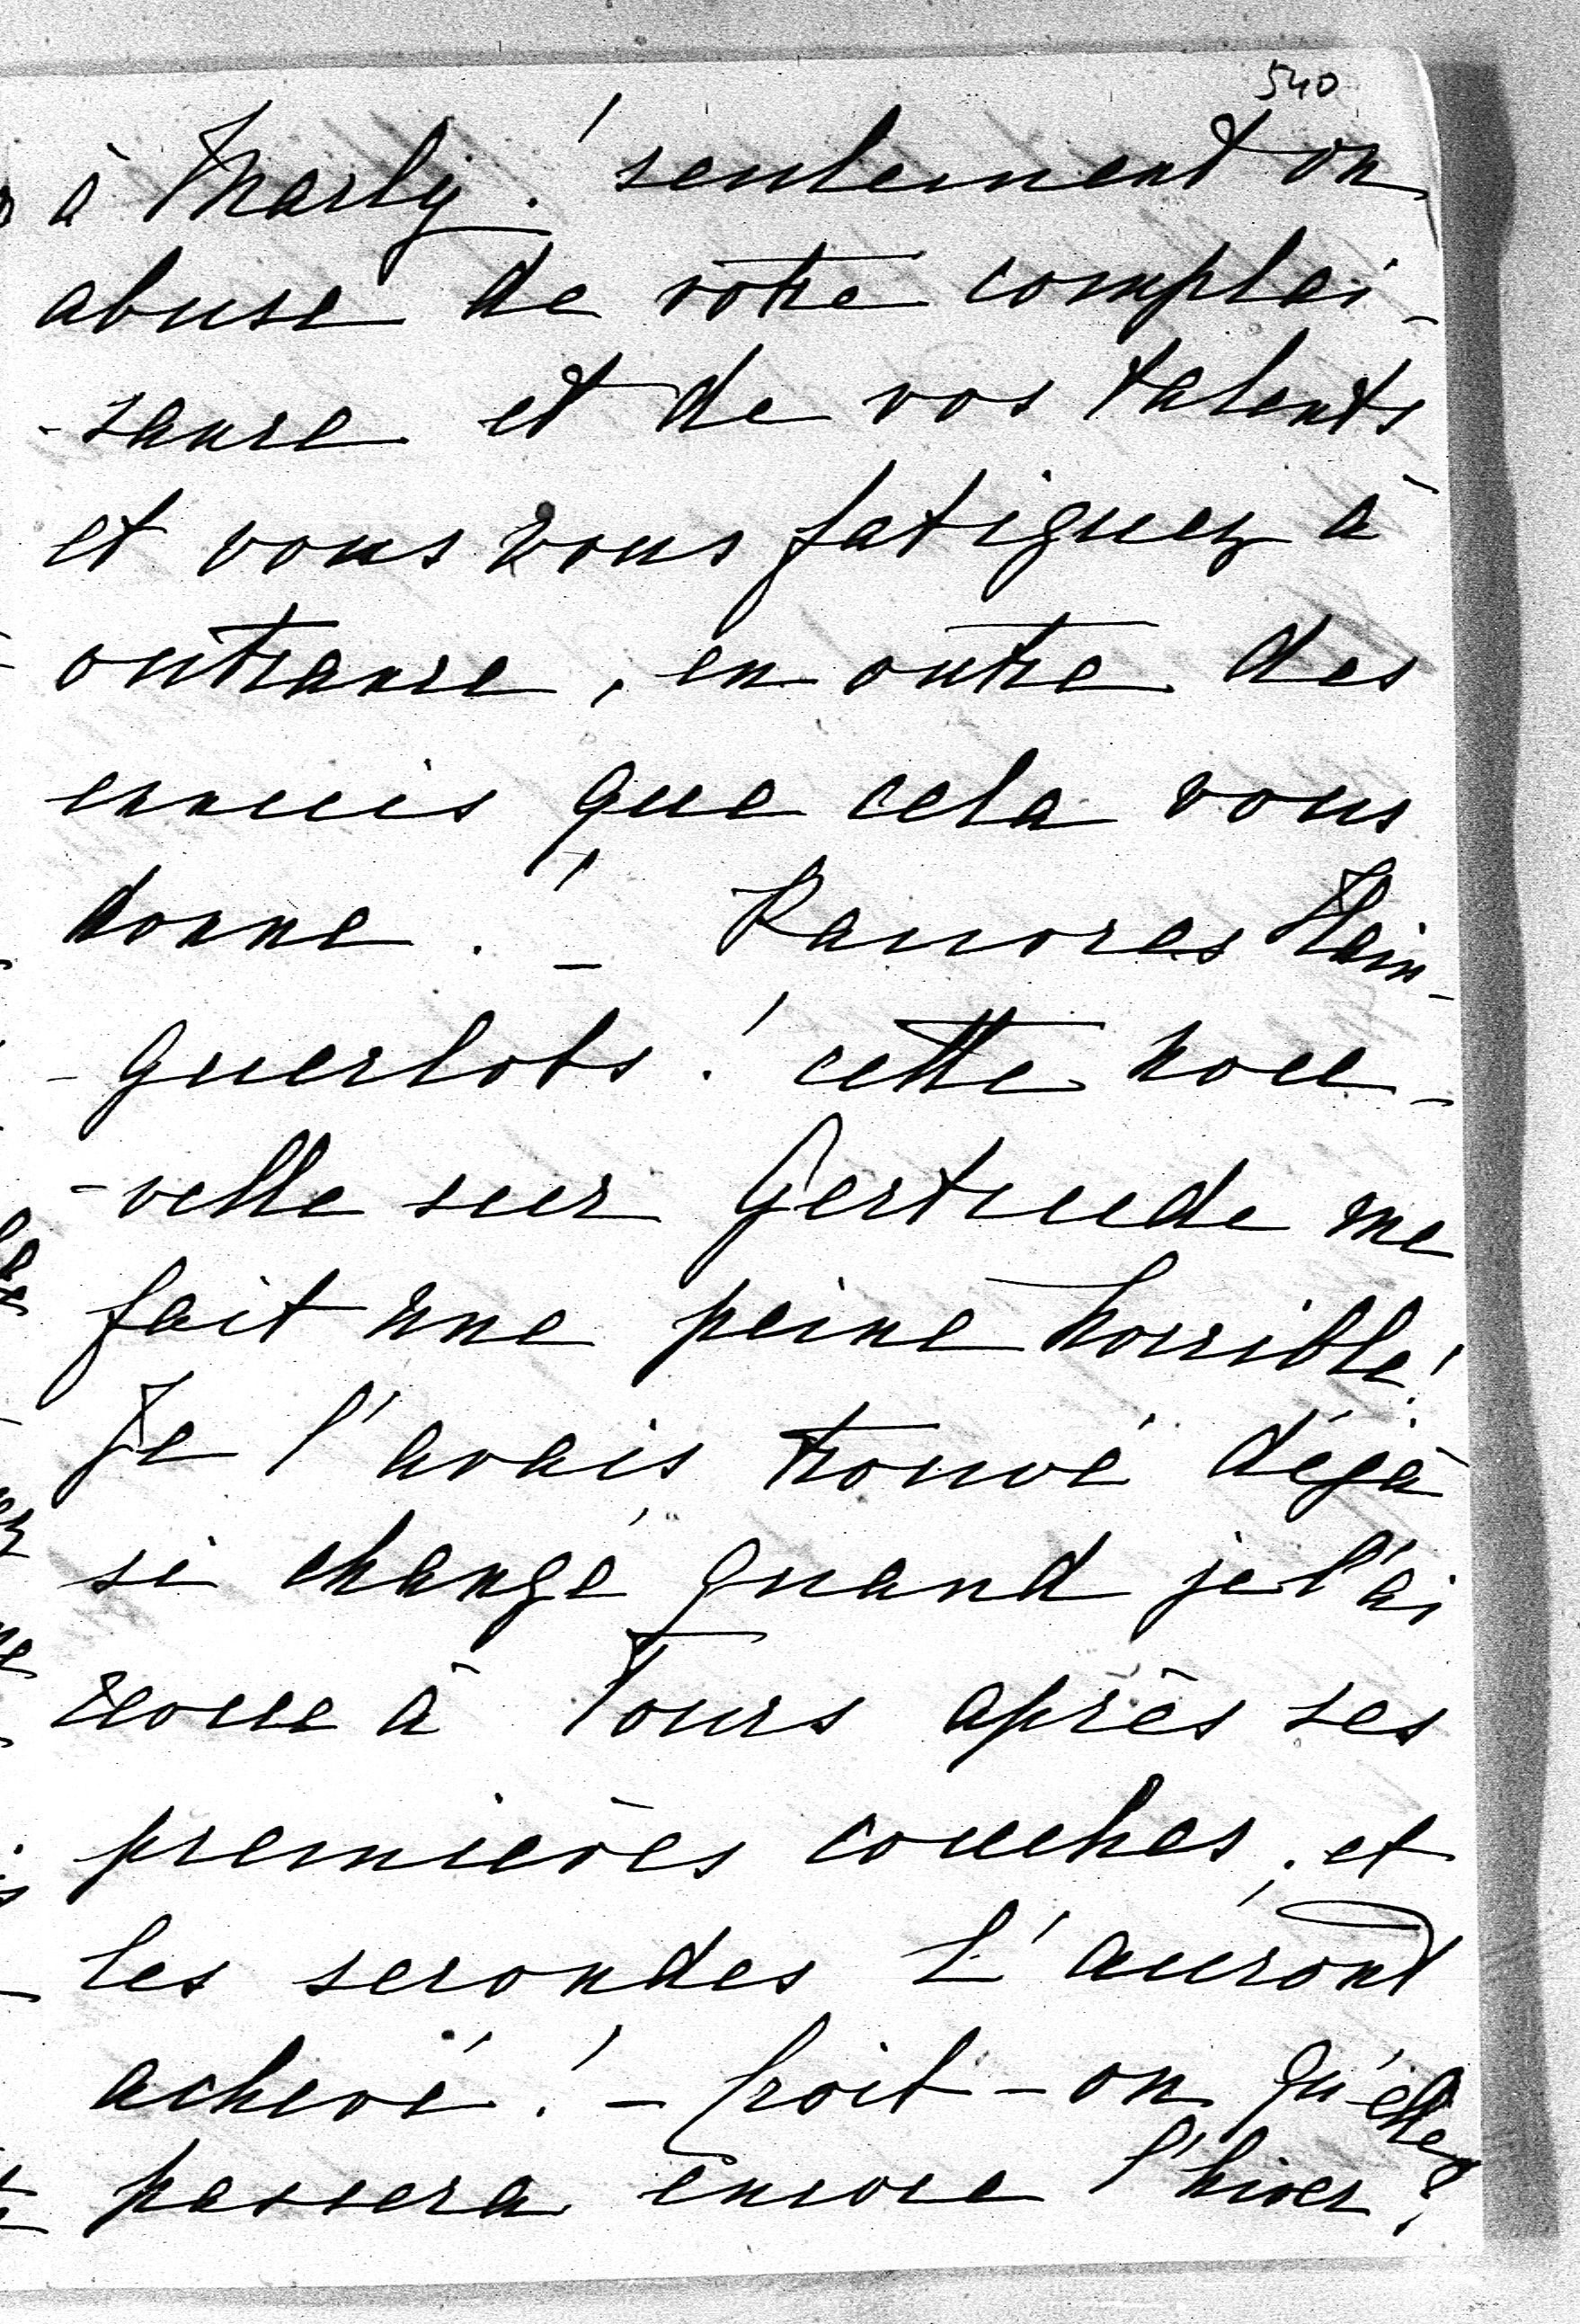 540
à Marly! seulement on
abuse de votre complai-
-sance et de vos talents
et vous vous fatiguez à
outrance, en outre des
ennuis que cela vous
donne! - Pauvres Hain-
-guerlots! cette nou-
-velle sur Gertrude me
fait une peine horrible!
Je l'avais trouvé déjà
si changé quand je l'ai
revue à Tours après ses
premières couches, et
les secondes L'auront
achevé! - Croit-on qu'elle
passera encore l'hiver?